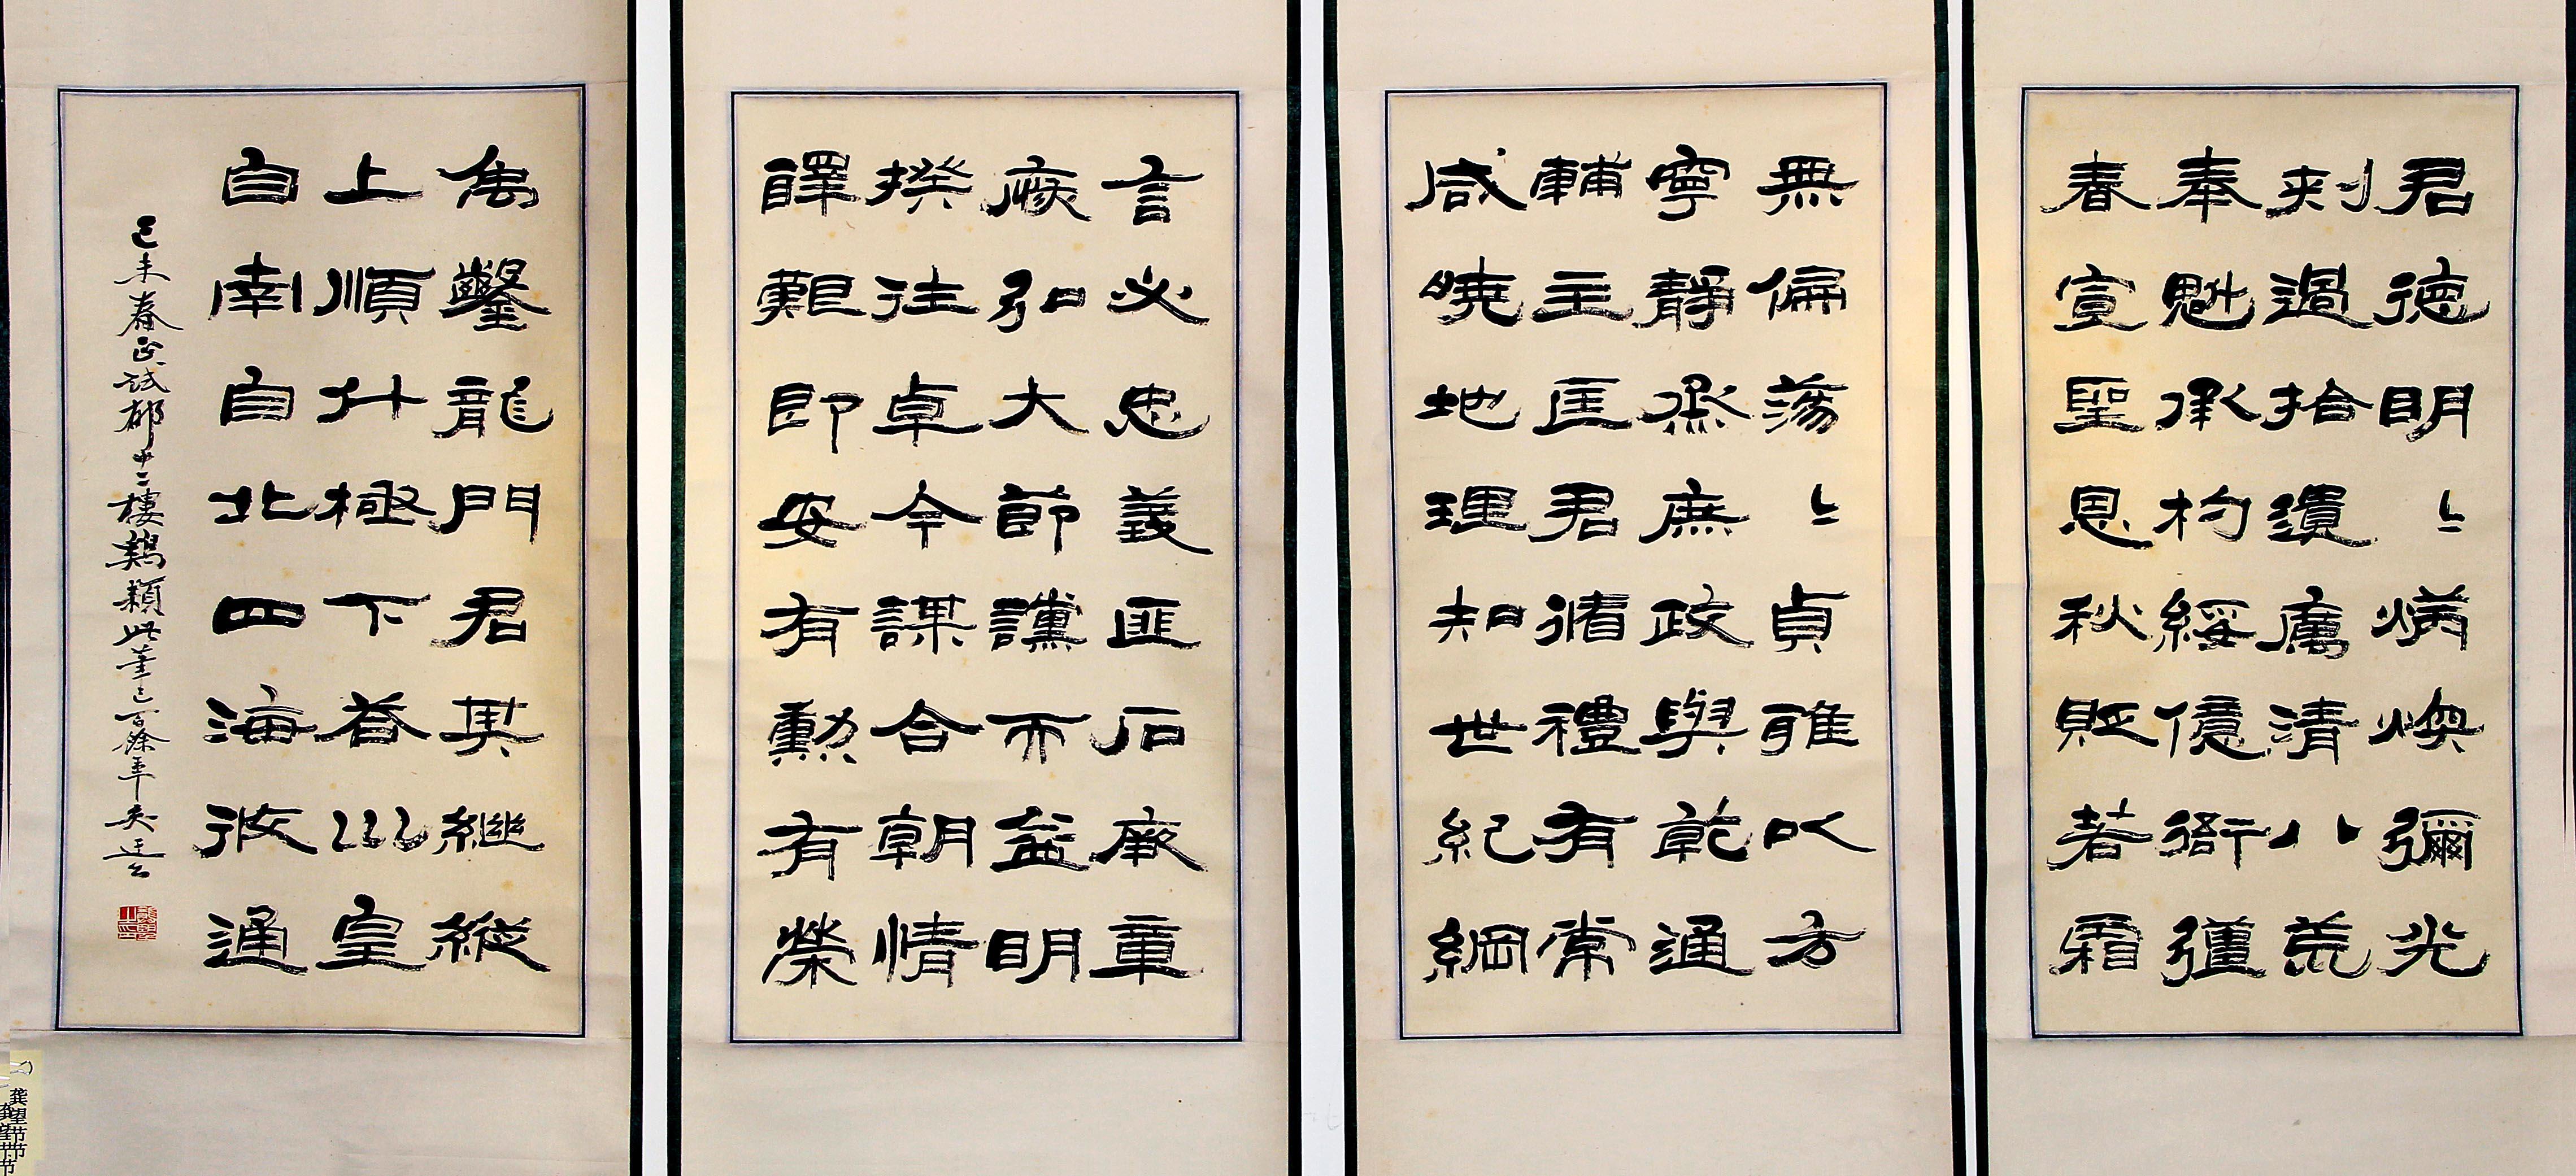 君德明〻炳煥彌光
刺過拾遺厲清八荒
奉魁承杓綏億衙彊
春宣聖恩秋貶若霜
無偏蕩〻貞雅以方
寧靜烝庶政與乾通
輔主匡君循禮有常
咸曉地理知世紀綱
言必忠義匪石厥章
恢弘大節讜而益明
揆往卓今謀合朝情
醳艱即安有勳有榮
禹鑿龍門君其繼縱
上順升極下荅巛皇
自南自北四海攸通
己未春正試郁廿二樓鷄穎此筆已百餘年矣
龚望节